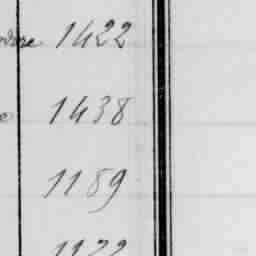 1422
1438
1189